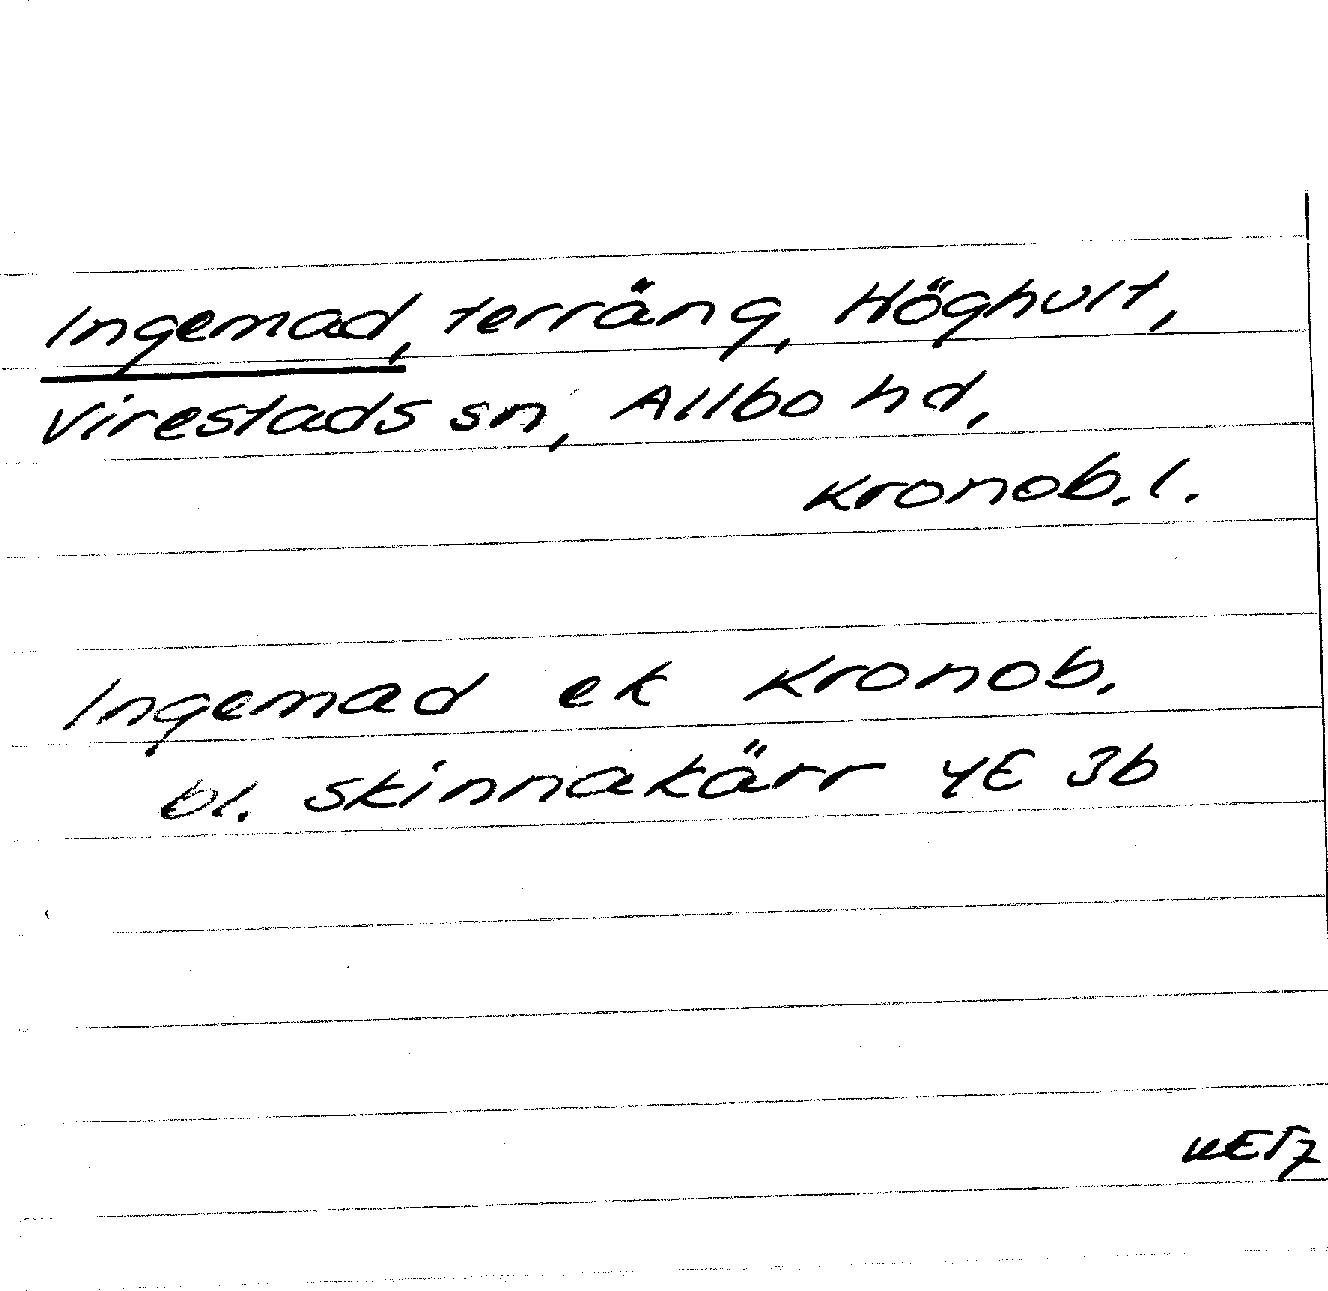 Ingemad, terräng, Höghult,
Virestads sn, Allbo hd,
Kronob. l.
Ingemad ek Kronob.
bl. Skinnakärr 4E 3b